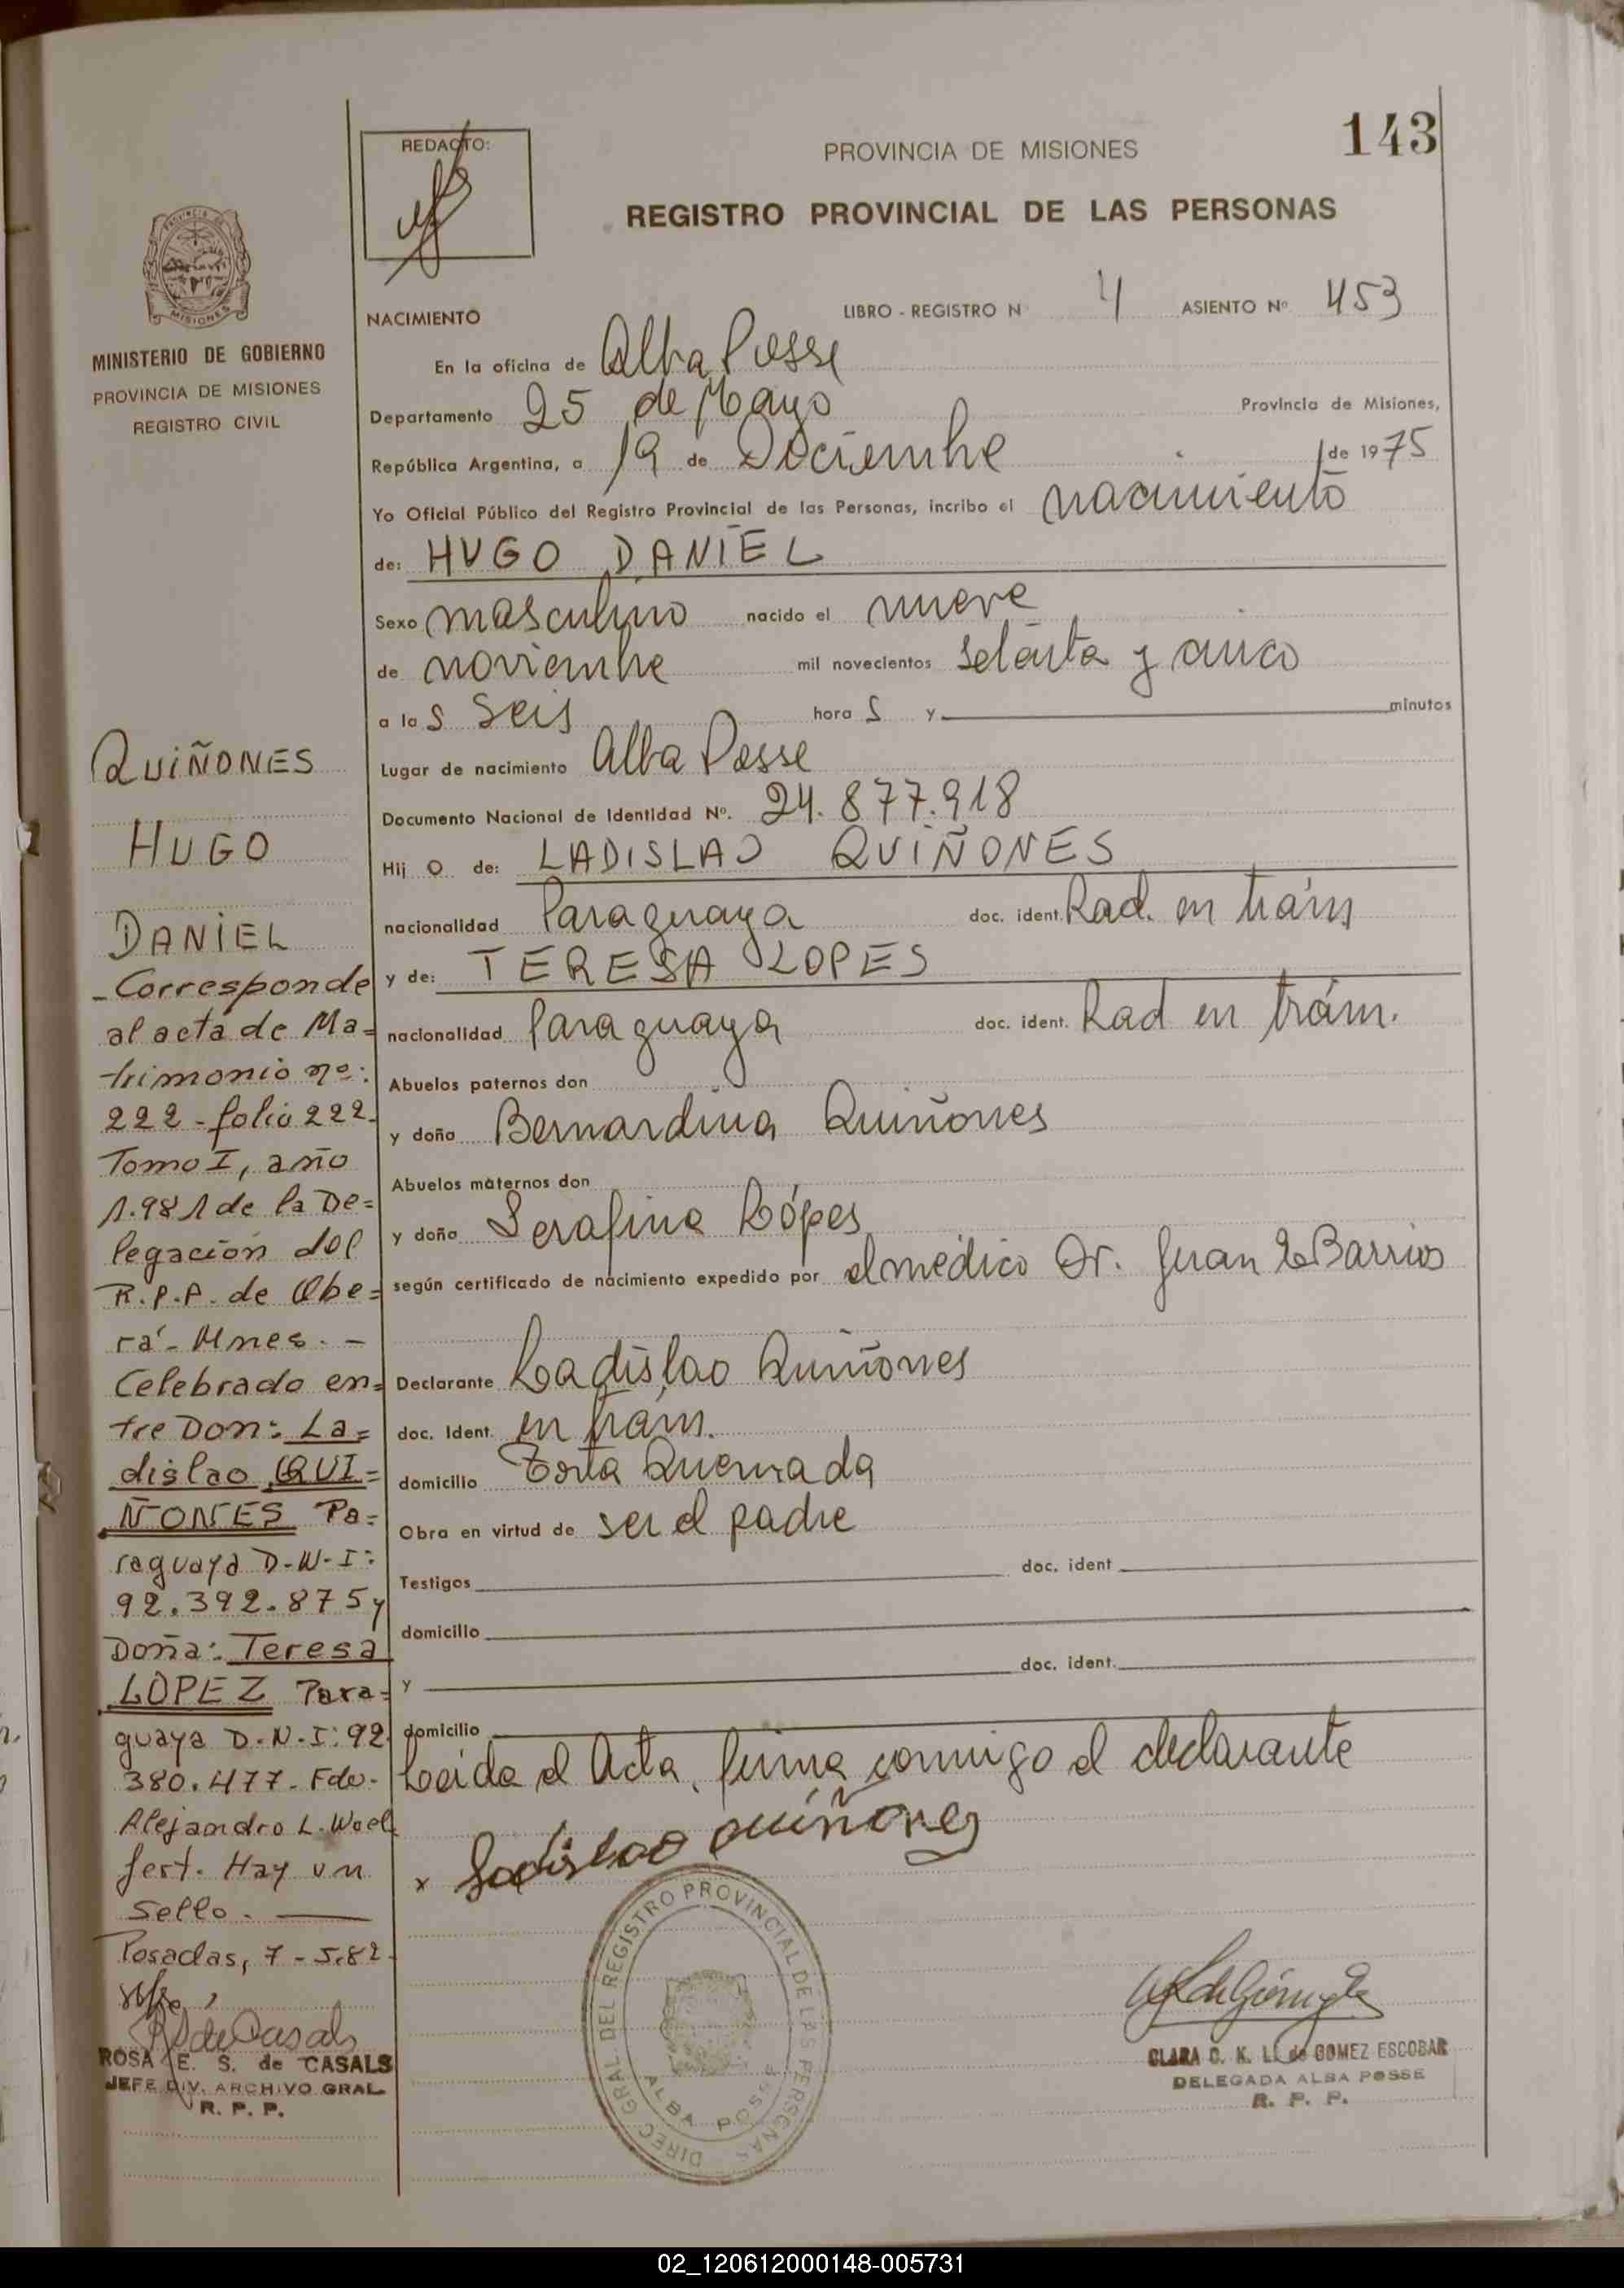 143
REDACTO:
PROVINCIA DE MISIONES
REGISTRO PROVINCIAL DE LAS PERSONAS
MISIONES
MINISTERIO DE GOBIERNO
PROVINCIA DE MISIONES
REGISTRO CIVIL
LIBRO - REGISTRO N 4 ASIENTO Nº 453
NACIMIENTO
En la oficina de Alba Posse
Departamento 25 de Mayo Provincia de Misiones,
República Argentina, a 19 de Diciembre de 1975
Yo Oficial Público del Registro Provincial de las Personas, incribo el nacimiento
de: HUGO DANIEL
Sexo masculino nacido el nueve
de noviembre mil novecientos setenta y cinco
a la s seis hora s y minutos
Lugar de nacimiento Alba Posse
Documento Nacional de Identidad Nº. 24.877.918
Hij o de: LADISLAO QUIÑONES
nacionalidad Paraguaya doc. ident. Rad. en trám
y de: TERESA LOPES
nacionalidad Paraguaya doc. ident. Rad en trám.
Abuelos paternos don
y doña Bernardina Quiñones
Abuelos maternos don
y doña Serafina Lópes
según certificado de nacimiento expedido por el médico Dr. Juan Barrios
Declarante Ladislao Quiñones
doc. Ident. en trám.
domicilio Torta Quemada
Obra en virtud de ser el padre
Testigos doc. ident
domicilio
y doc. ident.
domicilio
Leída el Acta, firma conmigo el declarante
x Ladislao Quiñones
QUIÑONES
HUGO
DANIEL
- Corresponde
al acta de Ma=
trimonio nº:
222 - folio 222-
Tomo I, año
1.981 de la De=
legación del
R.P.P. de Obe=
rá - Mnes. -
Celebrado en=
tre Don: La=
dislao QUI=
ÑONES Pa=
raguaya D-N-I:
92.392.875 y
Doña: Teresa
LOPEZ Para=
guaya D.N.I: 92.
380.477- Fdo-
Alejandro L. Woel
fert. Hay un
Sello.
Posadas, 7-5.82-
ROSA E. S. de CASALS
JEFE DIV. ARCHIVO GRAL
R. P. P.
DIREC. GRAL. DEL REGISTRO PROVINCIAL DE LAS PERSONAS
ALBA POSSE
CLARA C. K. L. de GOMEZ ESCOBAR
DELEGADA ALBA POSSE
R. P. P.
02_120612000148-005731